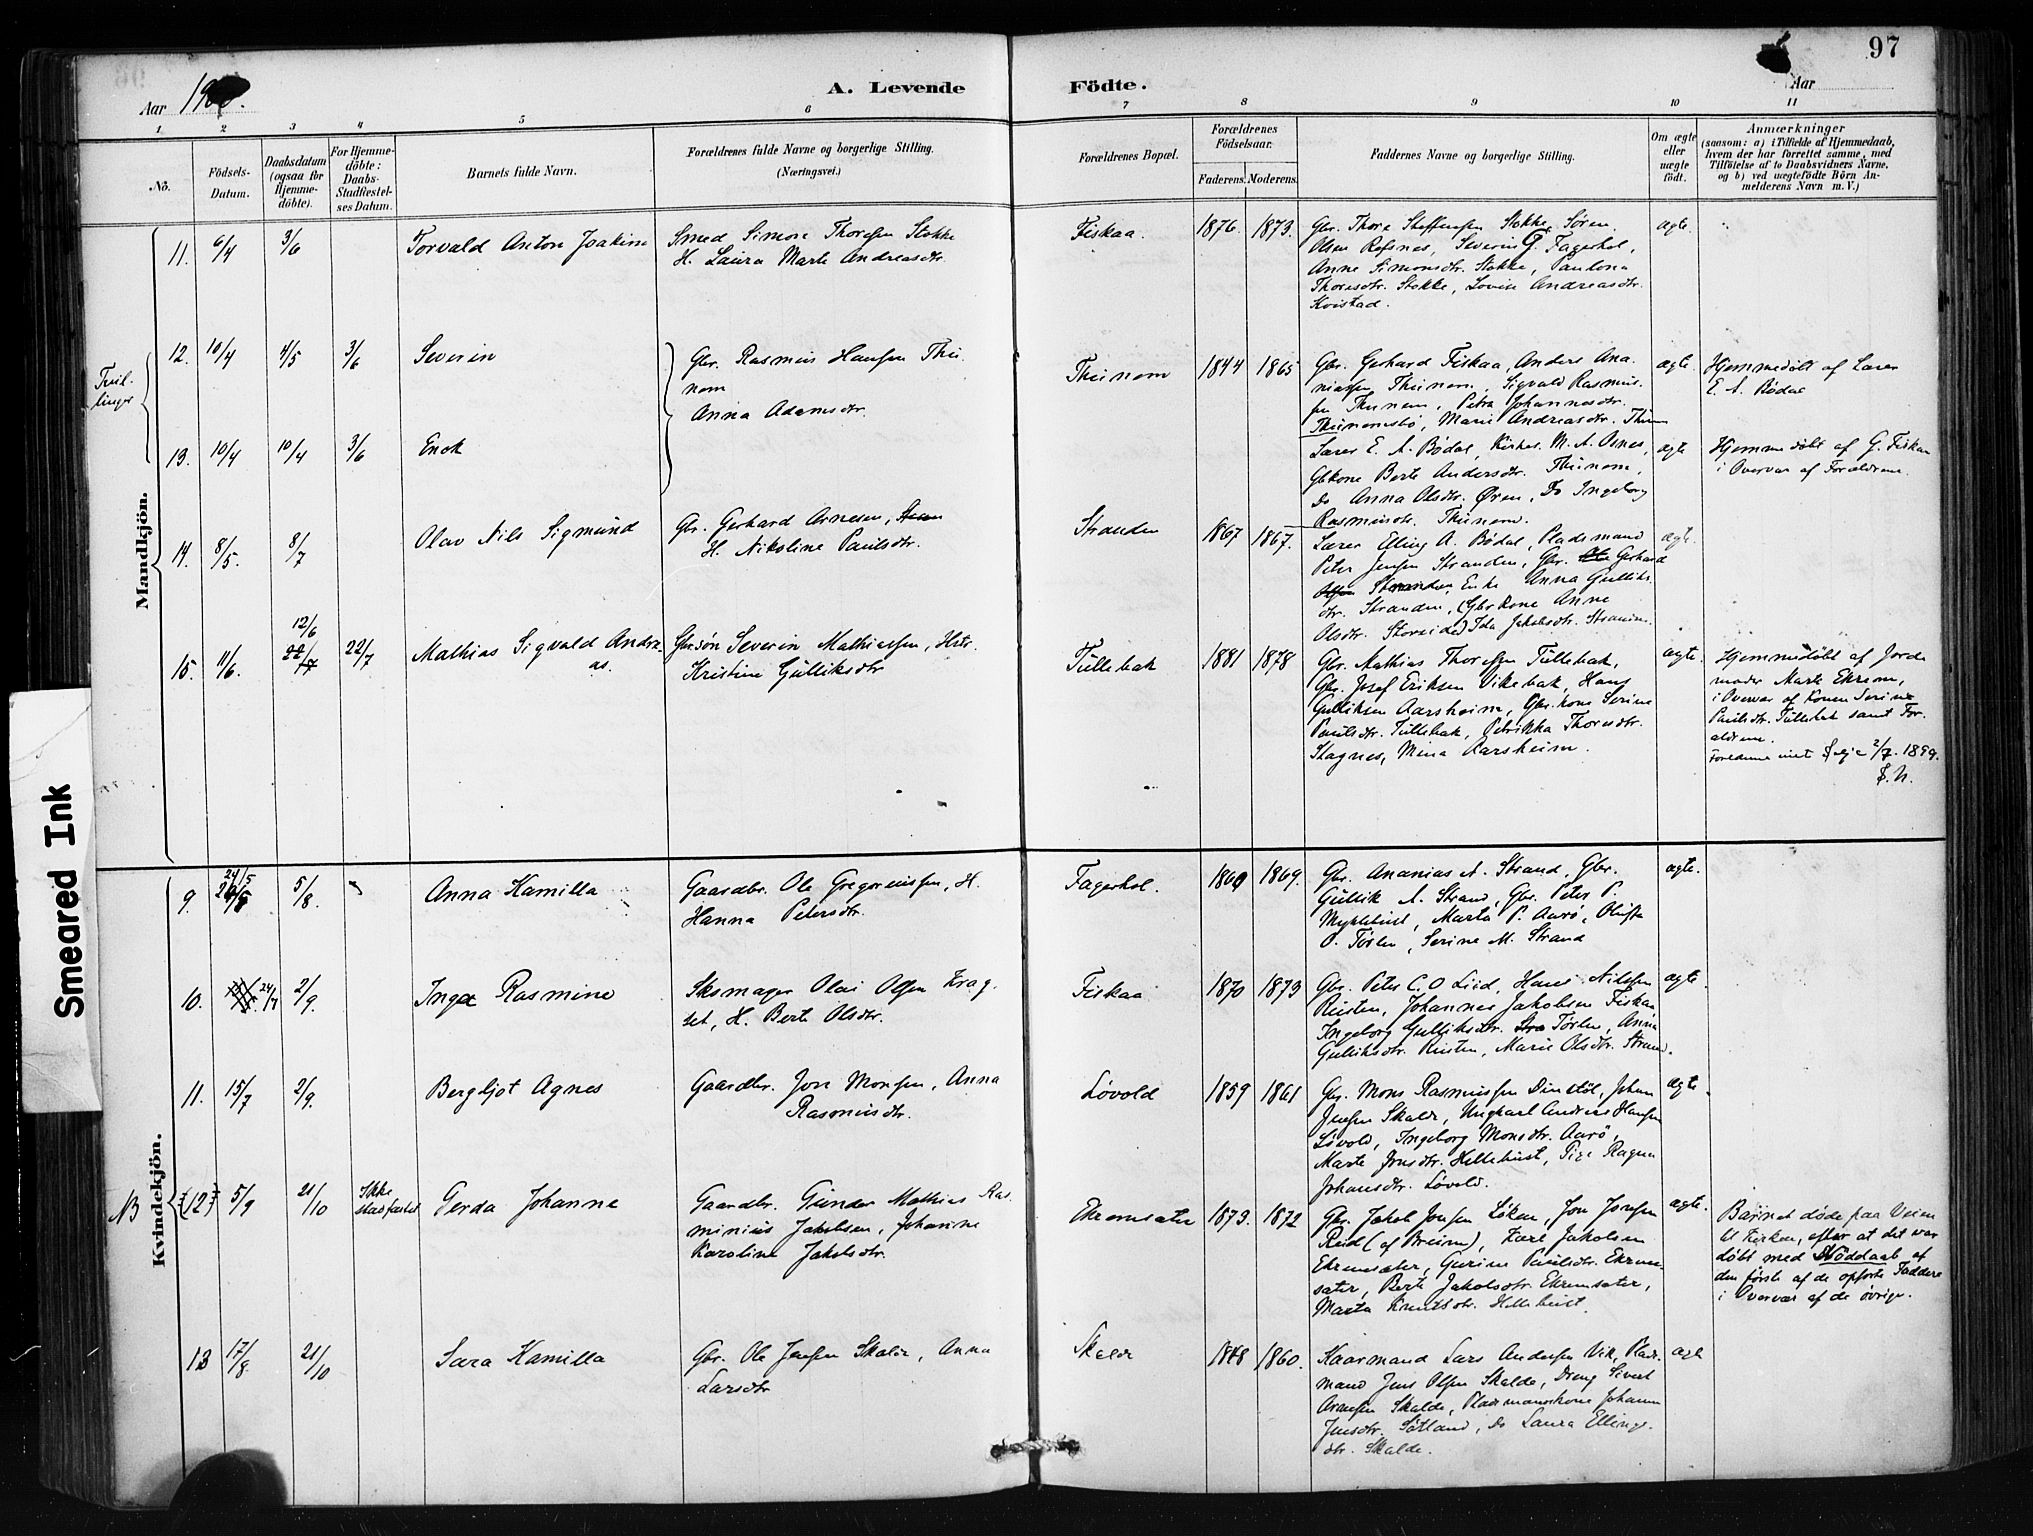 97
Aar 19
A. Levende
Födte.
Aar
1. 2 3 4 5 6 7 8 9 10 11
No.
Födsels-
Datum.
Daabsdatum
(ogsaa for
Hjemme-
döbte).
For Hjemme-
döbte:
Daabs-
Stadfæstel-
ses Datum.
Barnets fulde Navn.
Forældrenes fulde Navne og borgerlige Stilling.
(Næringsvei.)
Forældrenes Bopæl.
Forældrenes
Födselsaar.
Faderens. Moderens.
Faddernes Navne og borgerlige Stilling.
Om ægte
eller
uægte
födt.
Anmærkninger
(saasom: a) i Tilfælde af Hjemmedaab,
hvem der har forrettet samme, med
Tilföielse af to Daabsvidners Navne,
og b) ved uægtefödte Börn An-
melderens Navn m. V.)
Mandkjön.
11. 6/4 3/6 Torvald Anton Joakim
Smed Simon Thoresen Stokke
H. Laura Marte Andreasdtr.
Fiskaa. 1876. 1873.
Gbr. Thore Steffensen Stokke, Søren
Olsen Refsnes, Severin G. Fagerhol,
Anne Simonsdtr. Stokke, Paulona
Thoresdtr. Stokke, Lovise Andreasdtr.
Kvistad.
ægte.
Tvil-
linger
12. 10/4 4/5 3/6 Severin
Gbr. Rasmus Hansen Thu-
nem
Anna Adamsdtr.
Thunem 1844 1865
Gbr. Gerhard Fiskaa, Anders Ana-
niassen Thunem, Sigvald Rasmus-
sen Thunem, Petra Johannesdtr.
Thunemsbø, Marie Andreasdtr. Thun
ægte.
Hjemmedøbt af Lærer
E. A. Bødal
13. 10/4 10/4 3/6 Enok
Lærer E. A. Bødal, Kirkes. M. A. Osnes,
Gbkone Berte Andersdtr. Thunem,
Do Anna Olsdtr. Øren, Do Ingeborg
Rasmusdtr. Thunem.
ægte
Hjemmedøbt af G. Fiskaa
i Overvær af Forældrene.
14. 8/5. 8/7 Olav Nils Sigmund
Gbr. Gerhard Arnesen,
H. Nikoline Paulsdtr.
Stranden 1867 1867.
Lærer Elling A. Bødal, Pladsmand
Peter Jensen Stranden, Gbr. Gerhard
Stranden, Enke Anna Gulliks-
dtr. Stranden, (Gbrkone Anne
Olsdtr. Storeide) Ida Jakobsdtr.
ægte.
12/6
15. 11/6. 22/7 22/7 Mathias Sigvald Andre-
as.
Gutsøn Severin Mathiassen, Hstr.
Kristine Gulliksdtr
Tullebak 1881 1878
Gbr. Mathias Thoresen Tullebak,
Gbr. Josef Eriksen Vikebak, Hans
Gulliksen Aarsheim, Gbr.kone Serine
Paulsdtr. Tullebak, Petrikka Thoresdtr.
Stagnes, Mina Aarsheim.
ægte.
Hjemmedøbt af Jorde-
moder Marte Ekrem,
i Overvær af Konen Serine
Paulsdtr. Tullebak samt For-
ældrene.
Forældrene viet 2/7. 1899.
Smeared Ink
Kvindekjön.
24/5
9. 5/8. Anna Kamilla
Gaardbr. Ole Gregoriussen, H.
Hanna Petersdtr.
Fagerhol. 1860 1869.
Gbr. Ananias A. Strand, Gbr.
Gullik A. Strand, Gbr. Peter P.
Myklebust, Marta P. Aarø, Oluffa
O. Tørlen, Serine M. Strand
ægte.
10. 24/7 2/9. Inga Rasmine
Skomager Olai Olsen Krag-
set, H. Berte Olsdtr.
Fiskaa 1870 1873
Gbr. Peter C. O Liid, Hans Nilssen
Rusten, Johannes Jakobsen Fiskaa,
Ingeborg Gulliksdtr. Tørlen, Anna
Gulliksdtr. Rusten, Marie Olsdtr. Strand.
ægte.
11. 15/7 2/9. Bergljot Agnes
Gaardbr. Jon Monsen, Anna
Rasmusdtr.
Løvold 1859 1861
Gbr. Mons Rasmussen Dinstøl, Johan
Jensen Skalde, Ungkarl Andreas Hansen
Løvold, Ingeborg Monsdtr. Aarø,
Marte Jonsdtr. Hellebust, Pige Ragna
Johansdtr. Løvold.
ægte.
NB (12) 5/9 21/10 Ikke
stadfæstet Gerda Johanne
Gaardbr. Gunder Mathias Ras-
minius Jakobsen, Johanne
Karoline Jakobsdtr.
Ekremsæter 1873. 1872
Gbr. Jakob Jonsen Løken, Jon Jonsen
Reid (af Breim), Karl Jakobsen
Ekremsæter, Gurine Paulsdtr. Ekrem-
sæter, Berte Jakobsdtr. Ekremsæter,
Marta Knutsdtr. Hellebust.
ægte.
Barnet døde paa Veien
til Kirken, efter at det var
døbt med Nøddaab af
den første af de opførte Faddere
i Overvær af de øvrige.
13 17/8 21/10 Sara Kamilla
Gbr. Ole Jensen Skalde, Anna
Larsdtr
Skalde 1848 1860.
Kaarmand Lars Andersen Vik, Plads-
mand Jens Olsen Skalde, Dreng Sivert
Aransen Skalde, Pladsmandskone Johanne
Jensdtr. Sætland, Do Laura Ellings-
dtr. Skalde.
ægte